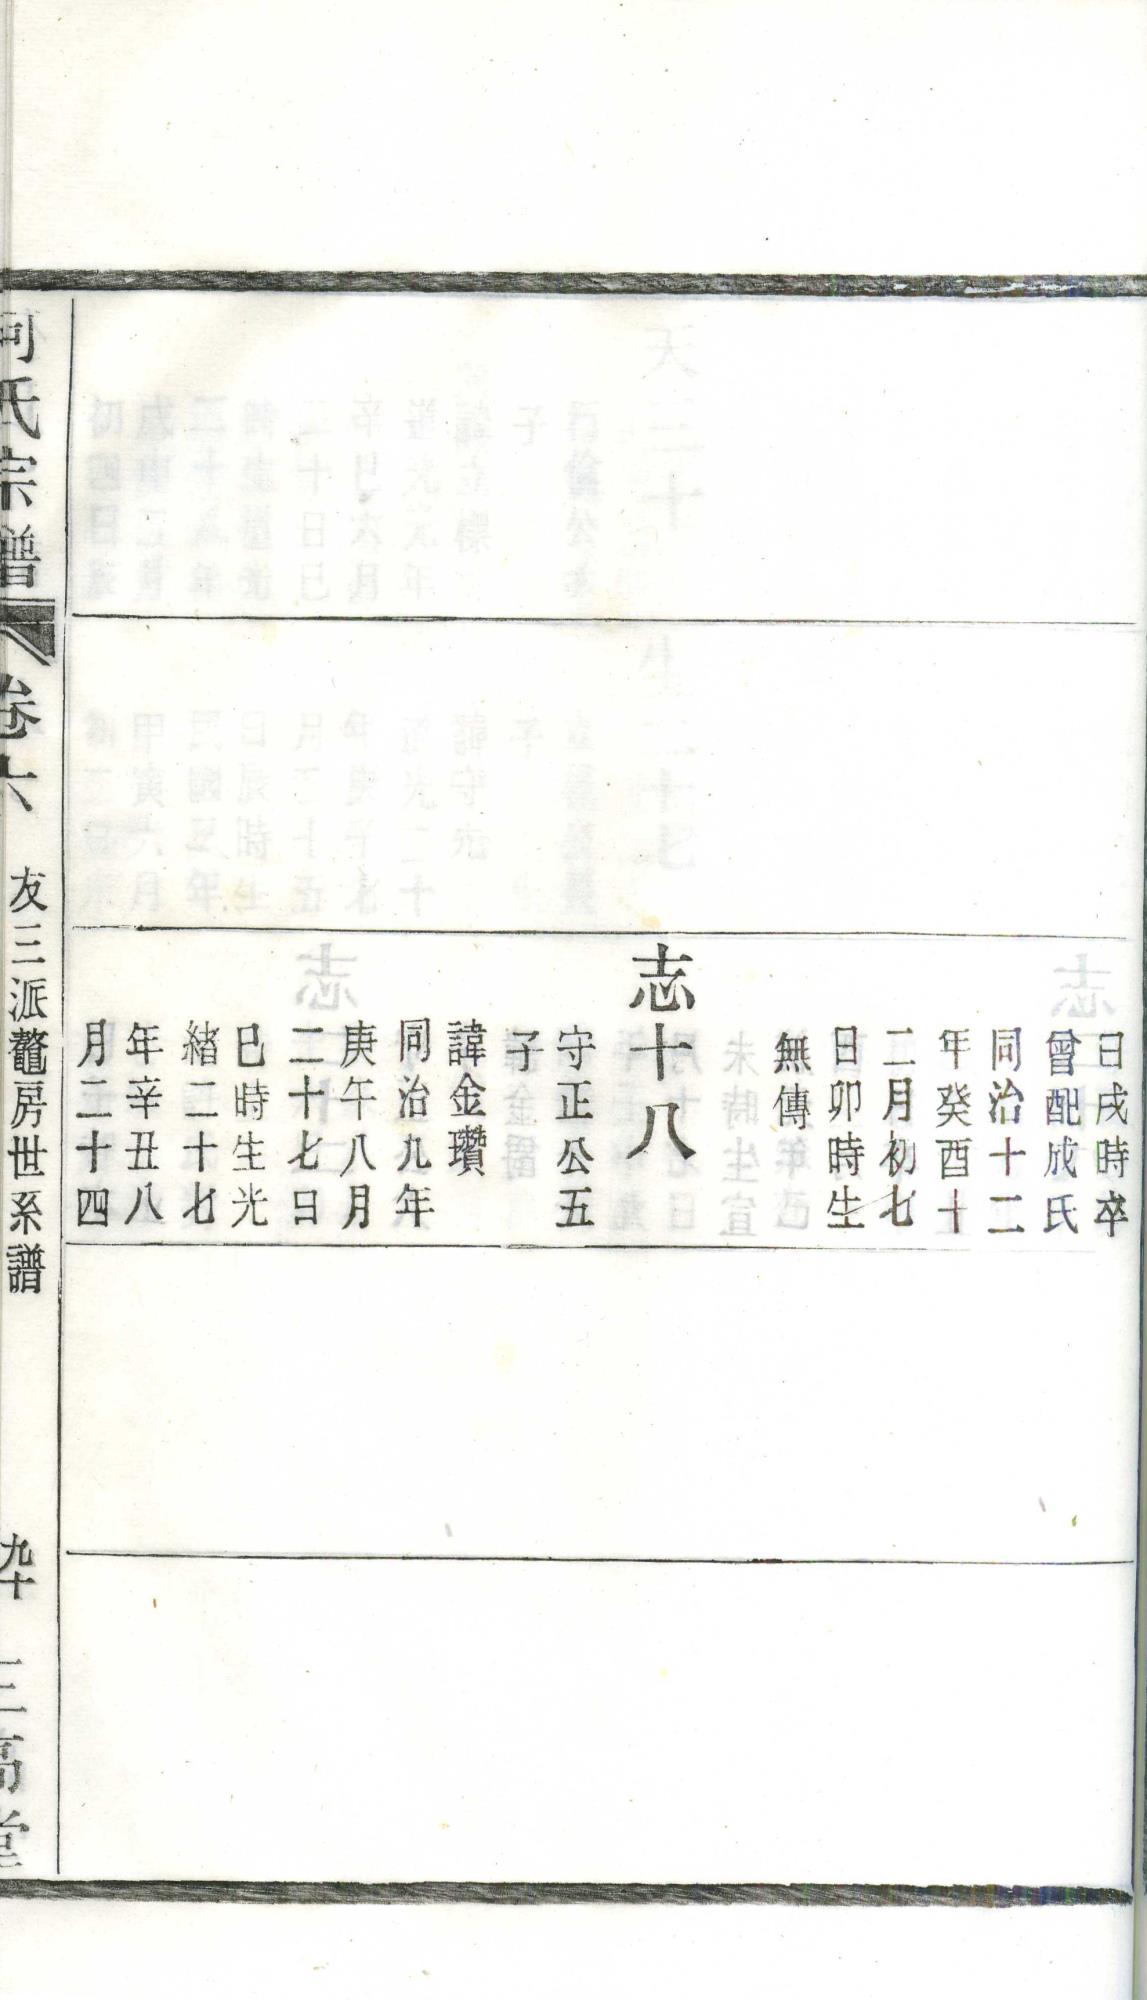 日戌時卒
曾配成氏
同治十二
年癸酉十
二月初七
日卯時生
無傳
志十八
守正公五
子
諱金瓚
同治九年
庚午八月
二十七日
巳時生光
緒二十七
年辛丑八
月二十四
氏宗譜
卷六
友三派鼇房世系譜
九十
三高堂